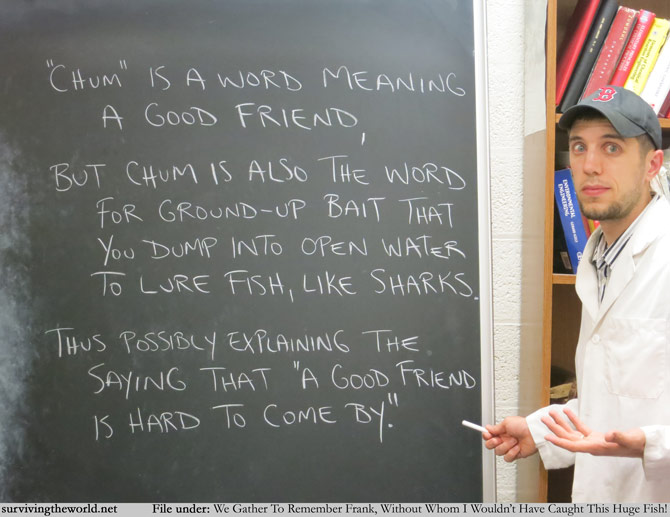 "CHUM" IS A WORD MEANING
A GOOD FRIEND,
BUT CHUM IS ALSO THE WORD
FOR GROUND-UP BAIT THAT
YOU DUMP INTO OPEN WATER
TO LURE FISH, LIKE SHARKS.
THUS POSSIBLY EXPLAINING THE
SAYING THAT "A GOOD FRIEND
IS HARD TO COME BY."
B
ENVIRONMENTAL
ENGINEERING
survivingtheworld.net File under: We Gather To Remember Frank, Without Whom I Wouldn't Have Caught This Huge Fish!